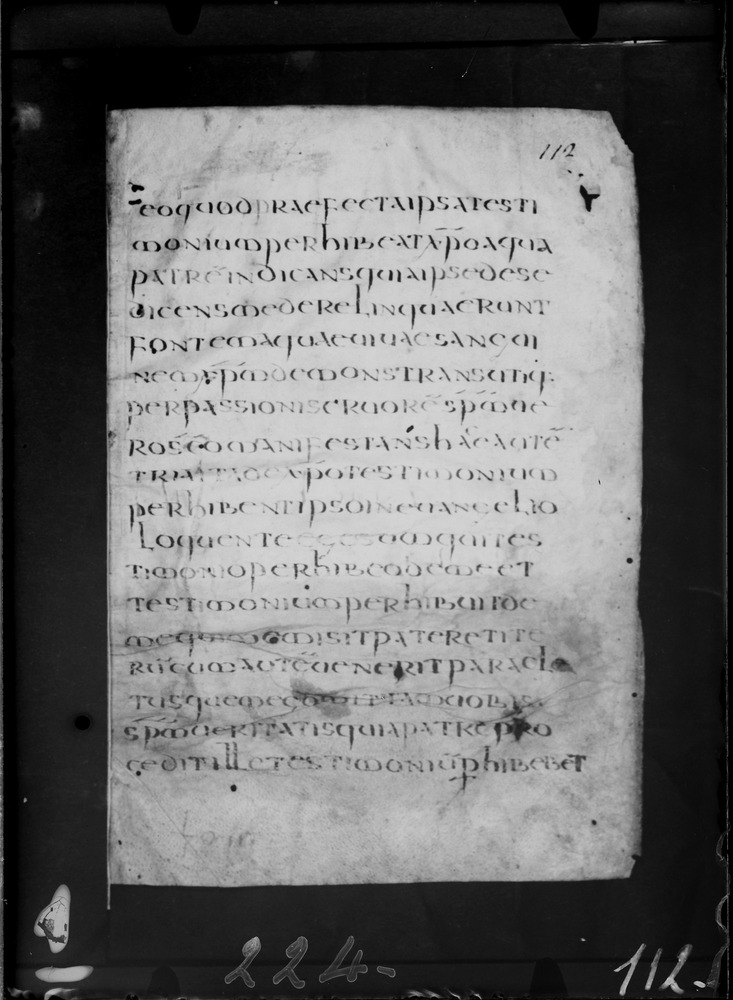 112
eo quod praefecta ipsa testi
monium perhibeat a̅po aqua
patre̅ indicans quia ipse de se
dicens me dereliquerunt
fontem aquae uiuae sangui
nem x̅p̅m demonstrans utiq·
per passionis cruore̅ sp̅m ue
ro sc̅o manifestans haec aute̅
tria ita de x̅po testimonium
perhibent ipso in euangelio
loquente ego sum qui tes
timonio perhibeo de me et
testimonium perhibuit de
me qui me misit pater et ite
ru̅ cum aute̅ uenerit paracli
tus quem ego mittam uobis
sp̅m ueritatis qui a patre pro
cedit ille testimoniu̅ p̱hibebet
224-
112-